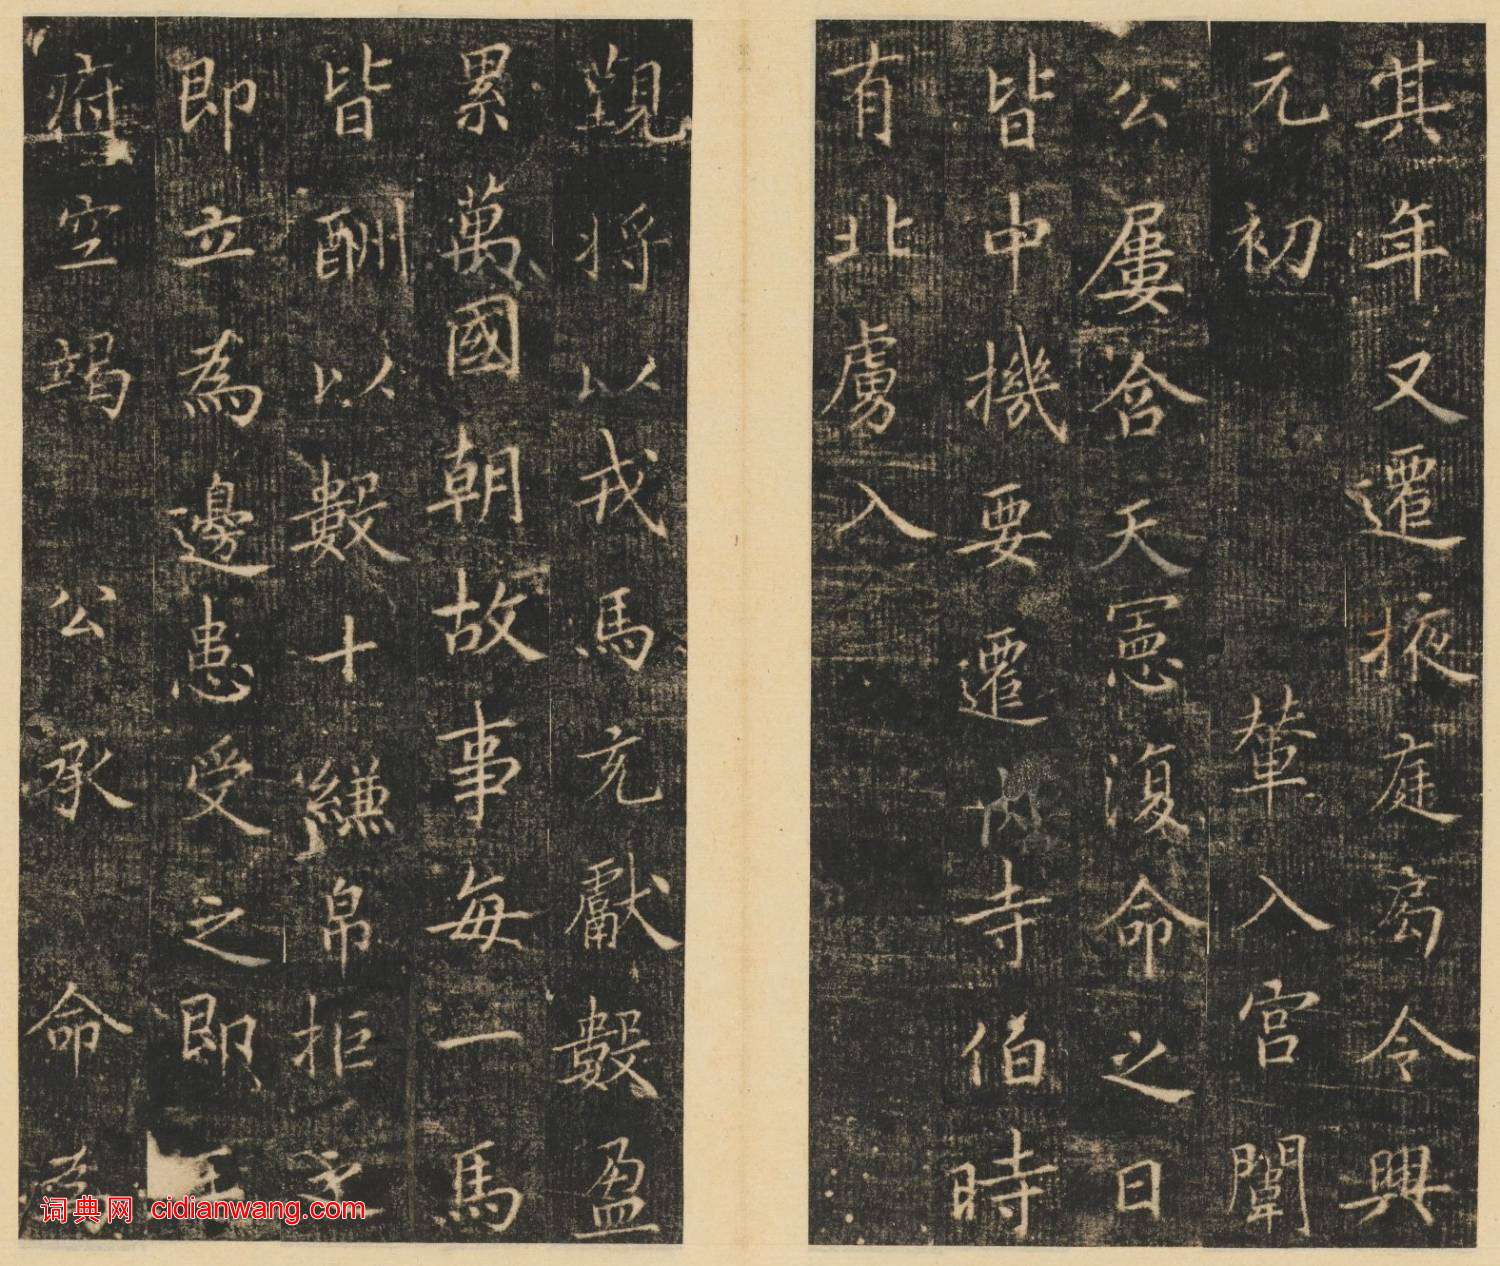 其年又遷掖庭局令興
元初 輦入宮闈
公屢含天憲復命之日
皆中機要遷内寺伯時
有北虜入
覲將以戎馬充獻數盈
累萬國朝故事每一馬
皆酬以數十縑帛拒之
即立為邊患受之即王
府空竭 公承命為
词典网 cidianwang.com